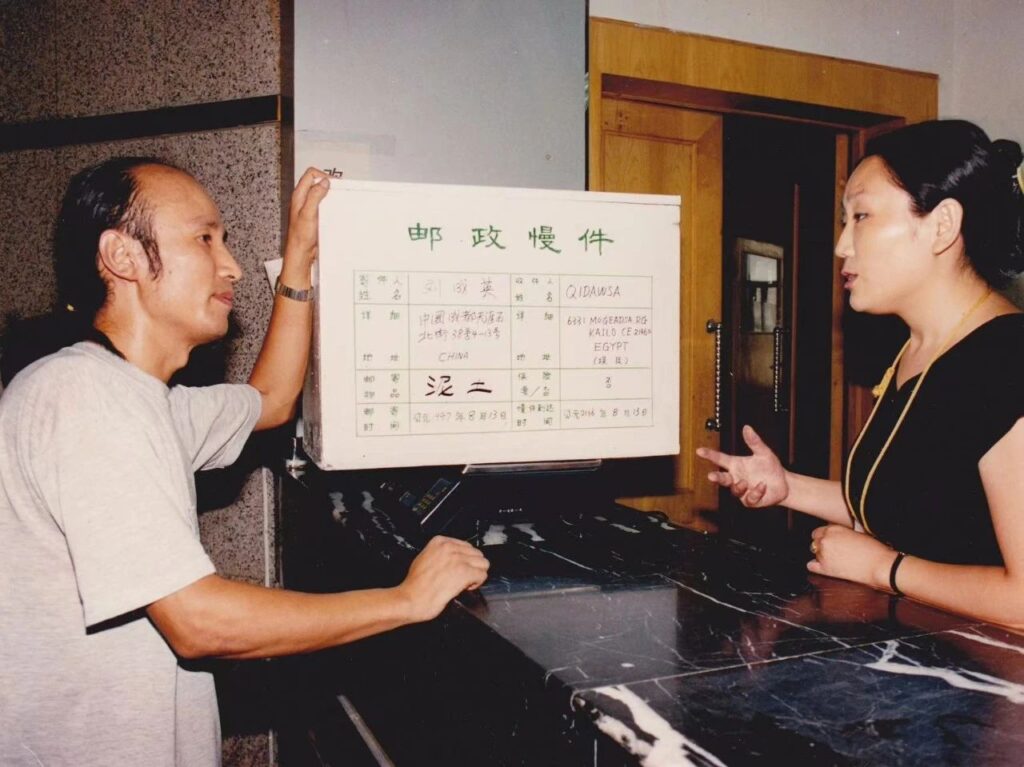 邮政慢件
寄件人
姓名
刘成英
收件人
姓名
QIDAWSA
详细
地址
中國成都天涯石
北街38号4-13号
CHINA
详细
地址
6331 MOGEADSA.RG
KAILO CE
EGYPT
(埃及)
邮寄
物品
泥土
保险
是/否
否
邮寄
时间
公元1997年8月13日
慢件到达
时间
年8月13日